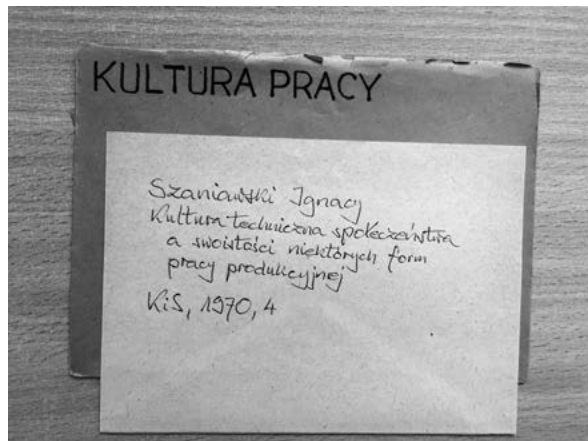 KULTURA PRACY
Szaniawski Ignacy
Kultura techniczna społeczeństwa
a swoistości niektórych form
pracy produkcyjnej
KiS, 1970, 4